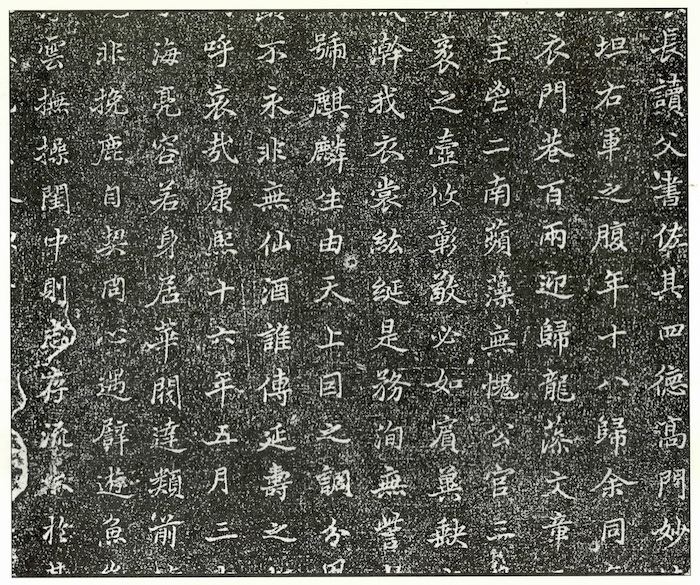 長讀父書佐其四德高門妙
坦右軍之腹年十八歸余同
衣門巷百兩迎歸龍藻文章
主鬯二南蘋藻無愧公宮三
袤之壼攸彰敬必如賓冀缺
澣我衣裳紘綖是務洵無訾
號麒麟生由天上因之調分
不永非無仙酒誰傳延壽之
呼哀哉康熙十六年五月三
海亮容若身居華閥達類前
非挽鹿自契同心遇譬遊魚
雲撫操閨中則志存流水於